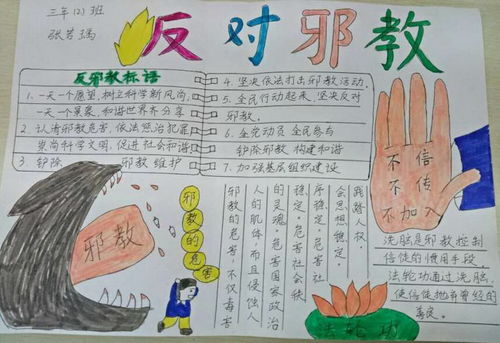 三年(2)班
张若瑀
反对邪教
反邪教标语
1、一天一个愿望,树立科学新风尚,
一天一个莫象,和谐世界齐分享
2、认清邪教危害,依法惩治犯罪
崇尚科学文明,促进社会和谐
3、铲除 邪教 维护
4、坚决依法打击邪教活动,
5、全民行动起来,坚决反对
邪教.
6、全党动员 全民参与
铲除邪教 构建和谐
7、加强基层组织建设
不信
不传
不加入
邪教
邪教的危害
邪教的危害,不仅毒害
人的肌体,而且侵蚀人
的灵魂。危害国家政治
稳定。危害社会秩
序稳定。危害社
会思想稳定。
践踏人权。
洗脑是邪教控制
信徒的惯用手段,
法轮功通过洗脑,
使信徒抛弃曾经的
法轮功